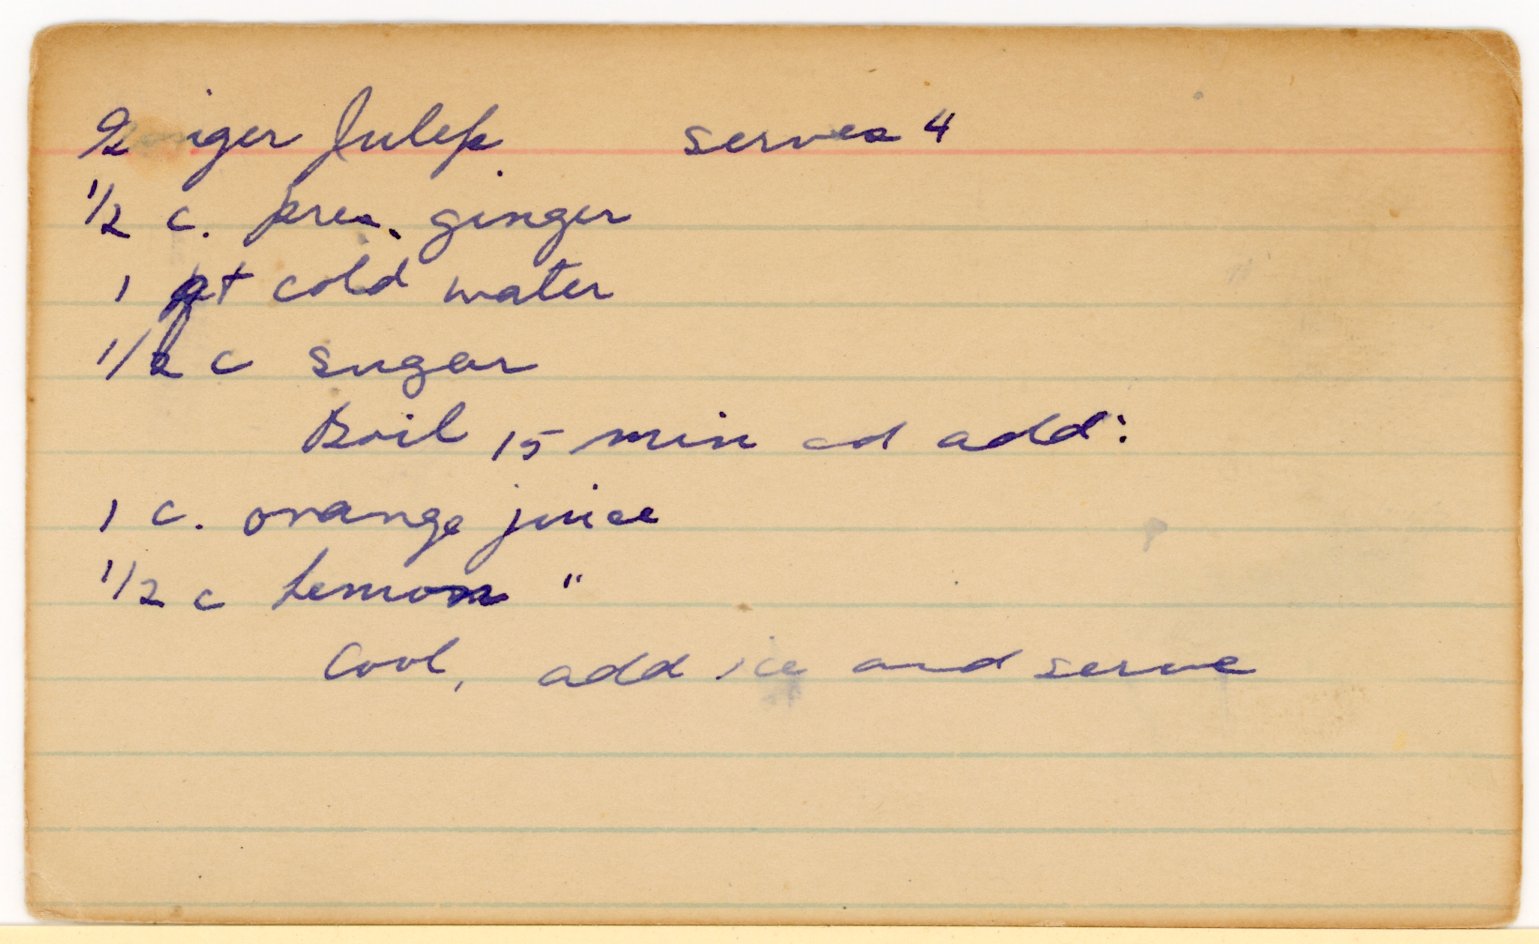 Ginger Julep serves 4
1/2 c. pres. ginger
1 pt cold water
1/2 c sugar
Boil 15 min ad add:
1 c. orange juice
1/2 c Lemon "
Cool, add ice and serve